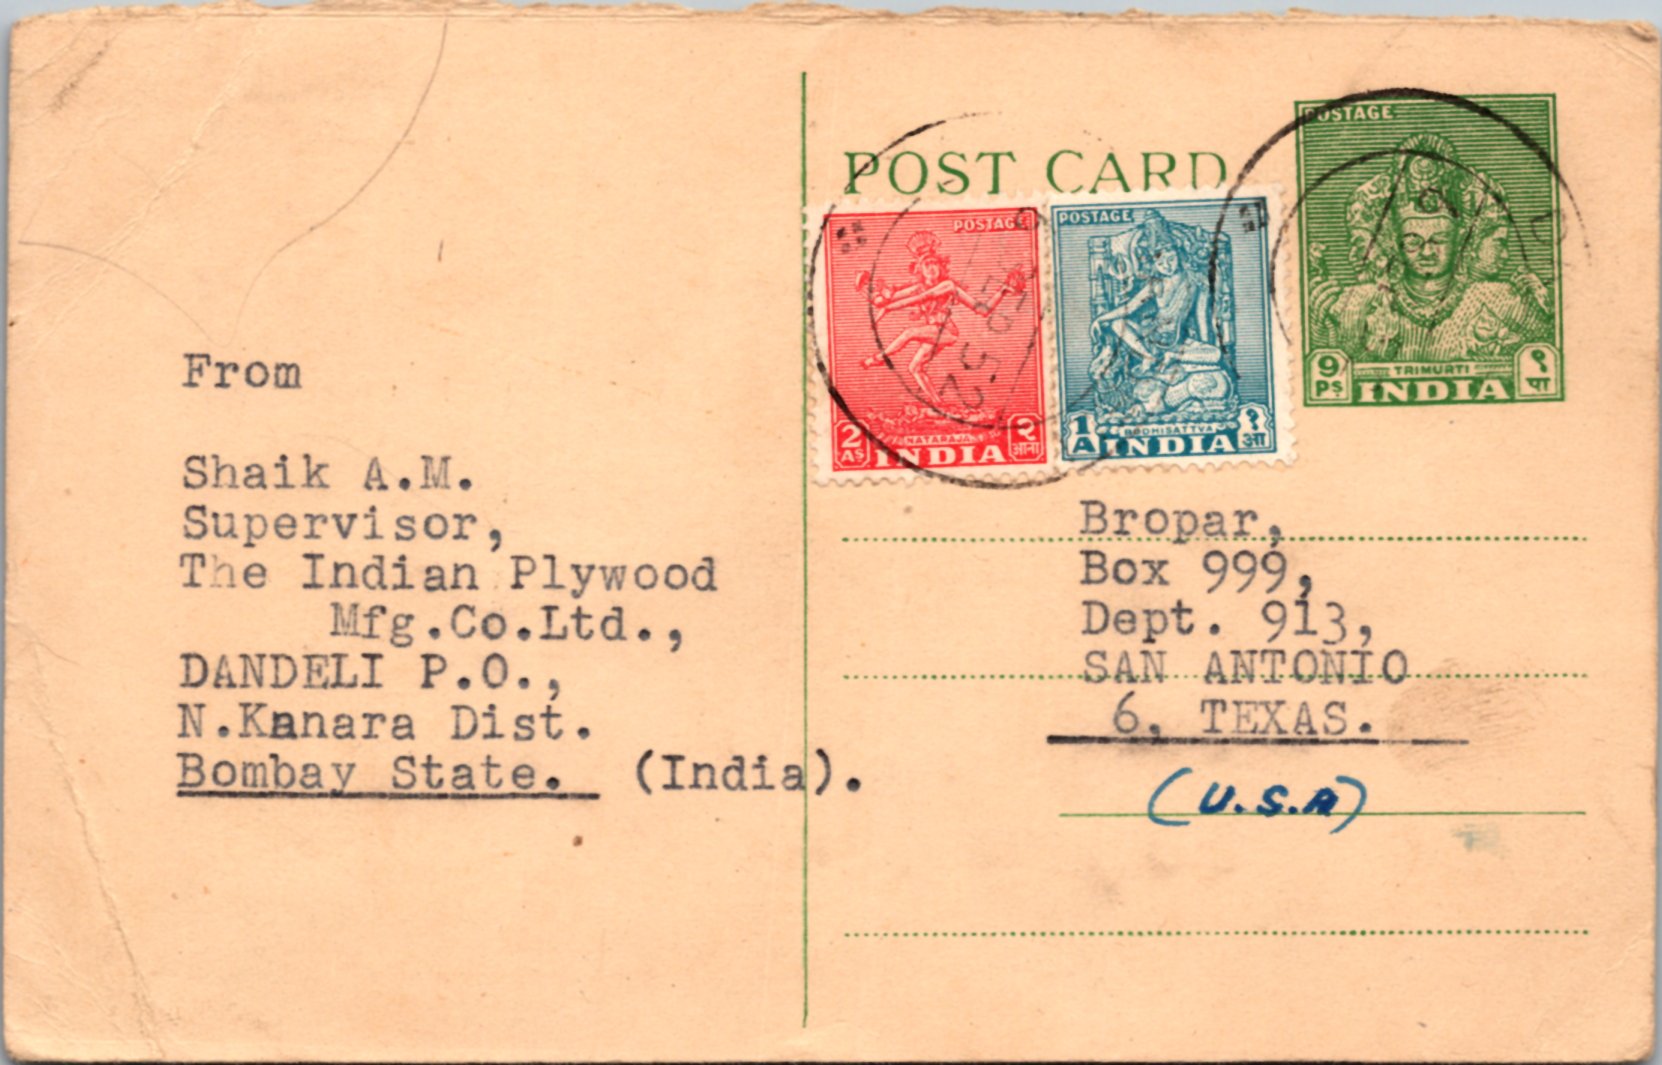 From
Shaik A.M.
Supervisor,
The Indian Plywood
Mfg.Co.Ltd.,
DANDELI P.O.,
N.Kanara Dist.
Bombay State. (India).
POST CARD
POSTAGE
NATARAJA
2 AS
INDIA
२ आना
POSTAGE
BODHISATTVA
1 A
INDIA
१ आ
POSTAGE
TRIMURTI
9 PS
INDIA
९ पा
SE
52
Bropar,
Box 999,
Dept. 913,
SAN ANTONIO
6, TEXAS.
(U.S.A)